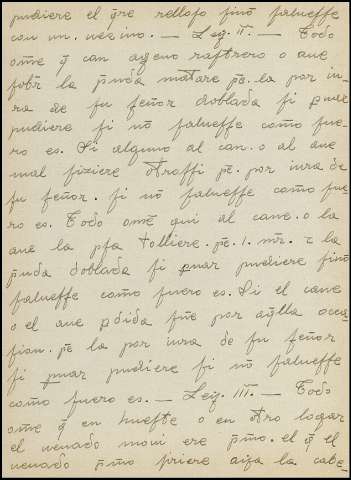 pudiere el q̃re rellofo finõ falueffe
con un. uezino. — Ley. II. — Todo
ome q̃ can ageno raftrero o aue
fobr̃ la p̃nda matare pẽ. la por iu
ra de fu feñor doblada fi puar
pudiere fi nõ falueffe como fue
ro es. Si alguno al can. o al aue
mal fiziere Otraffi pẽ. por iura de
fu feñor. fi nõ falueffe como fue
ro es. Todo omẽ qui al cane. o la
aue la pfa tolliere. pẽ. I. mr̃. τ la
p̃nda doblada fi puar pudiere finõ
falueffe como fuero es. Si el cane
o el aue pdida fue por aq̃lla oca
fion. pẽ la por iura de fu feñor
fi puar pudiere fi nõ falueffe
como fuero es. — Ley. III. — Todo
ome q̃ en huefte o en otro logar
el uenado moui ere p̃mo. el q̃ el
uenado p̃mo firiere aiga la cabe